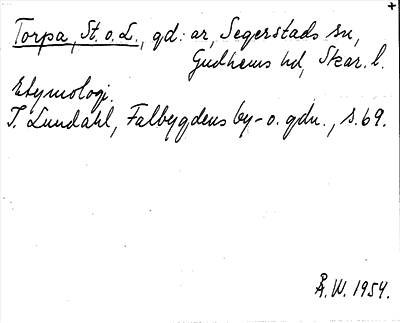 Torpa, St. o. L., gd: ar, Segerstads sn,
Gudhems hd, Skar. l.
Etymologi.
I. Lundahl, Falbygdens by- o. gdn., s. 69.
Å. W. 1954.